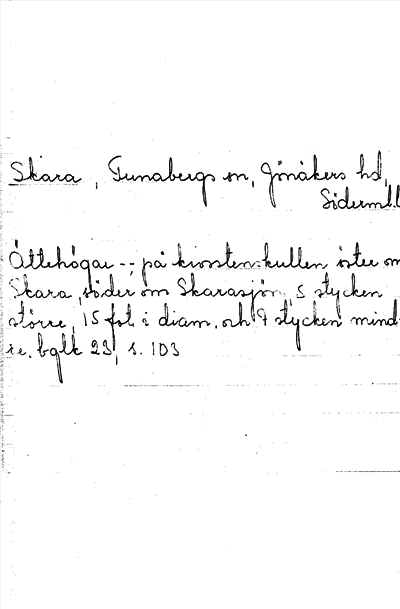 Skara, Tunabergs sn, Jönåkers hd,
Söderml.
Ättehögar -- på kullen öster om
Skara, söder om Skarasjön, 5 stycken
större, 15 fot i diam. och 9 stycken mind-
re. bglk 23, s. 103